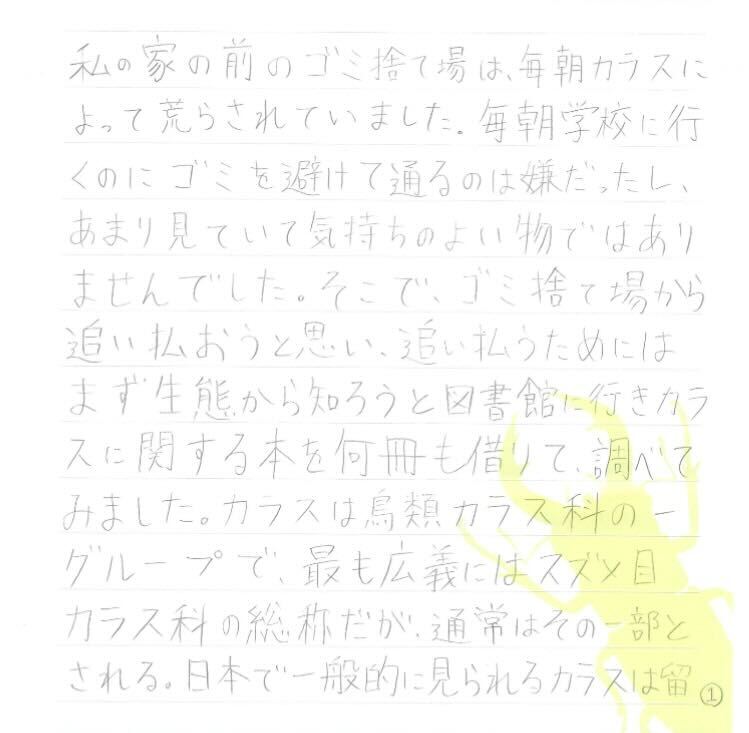 私の家の前のゴミ捨て場は、毎朝カラスに
よって荒らされていました。毎朝学校に行
くのにゴミを避けて通るのは嫌だったし、
あまり見ていて気持ちのよい物ではあり
ませんでした。そこで、ゴミ捨て場から
追い払おうと思い、追い払うためには
まず生態から知ろうと図書館に行きカラ
スに関する本を何冊も借りて、調べて
みました。カラスは鳥類カラス科の一
グループで、最も広義にはスズメ目
カラス科の総称だが、通常はその一部と
される。日本で一般的に見られるカラスは留
①